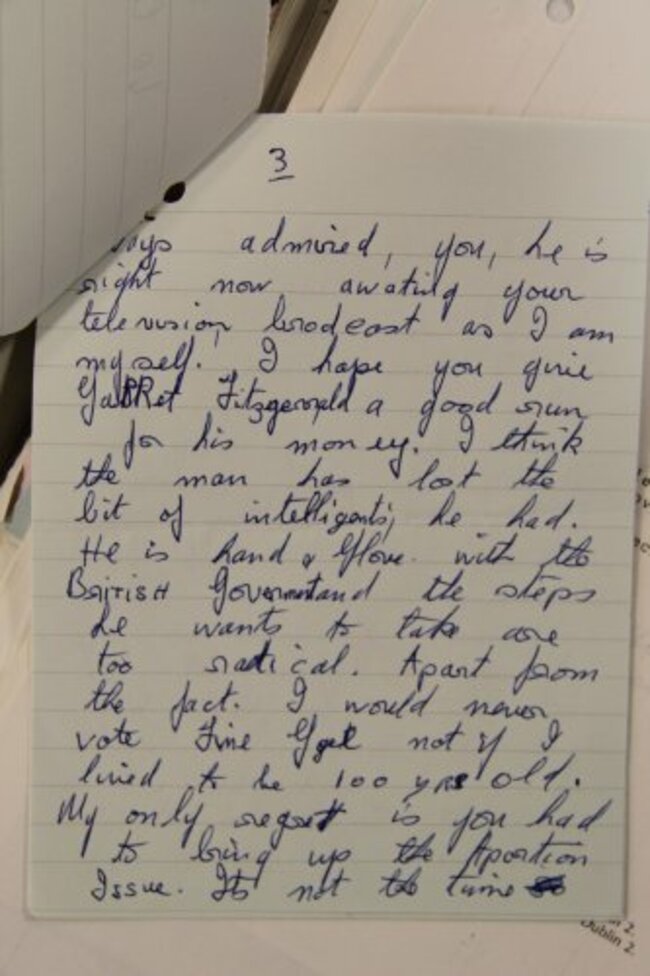 3
ways admired, you, he is
right now awatiig your
television brodcast as I am
myself. I hope you give
GaRRet Fitzgerald a good run
for his money. I think
the man has lost the
bit of intelligents, he had.
He is hand & Glove with the
BRITISH Government and the steps
he wants to take are
too radical. Apart from
the fact. I would never
vote Fine Gael not if I
lived to be 100 yrs old.
My only regret is you had
to bring up the Aportion
Issue. Its not the time
Dublin 2.